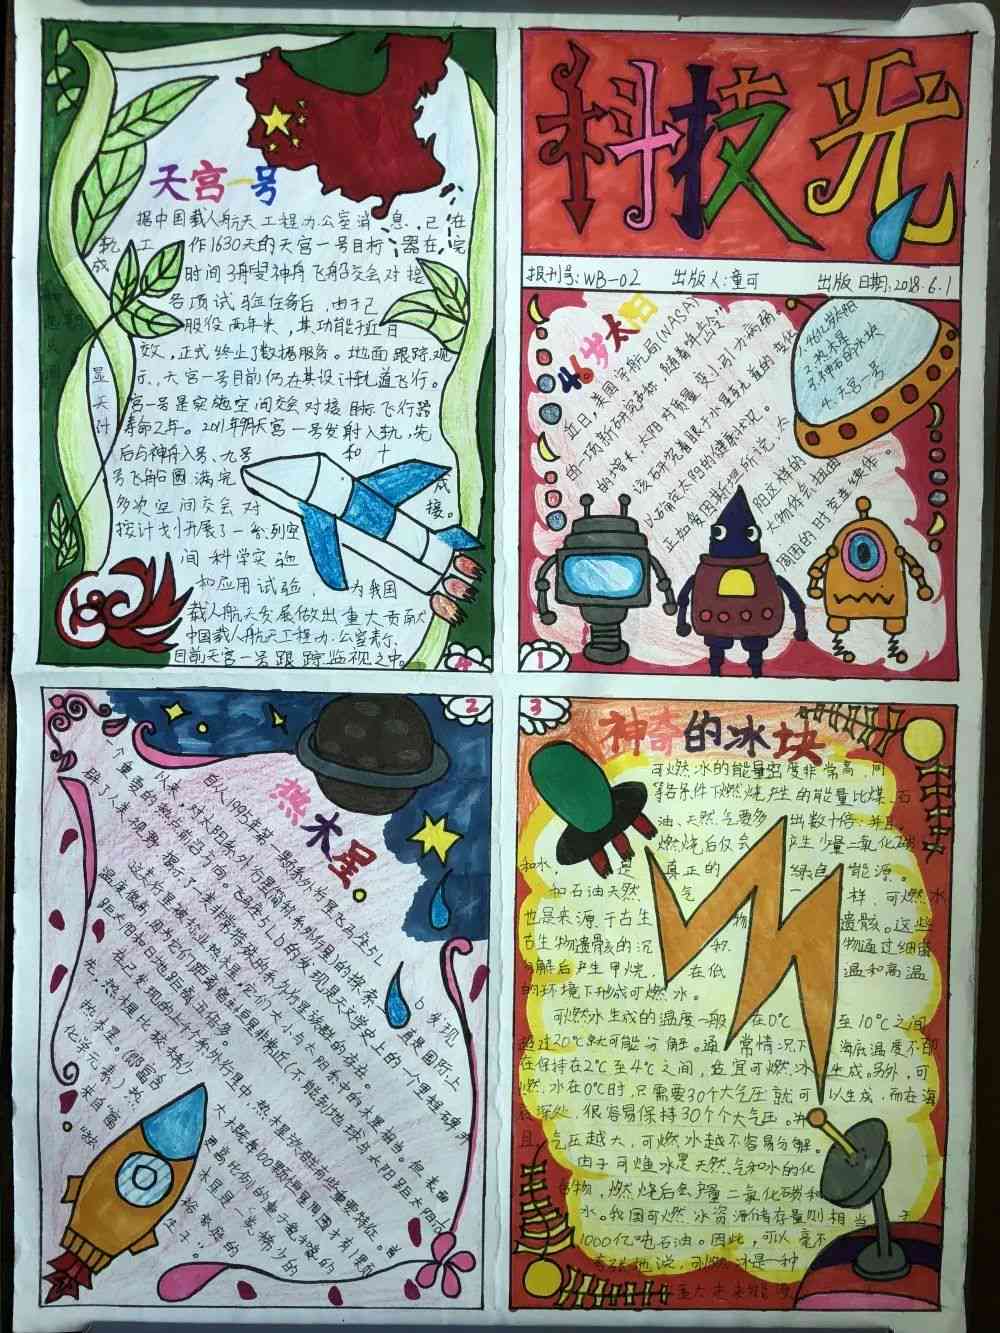 科技光
报刊号:WB-02 出版人:童可 出版日期:2018.6.1
46亿岁太阳
近日,美国宇航局(NASA)
的一项新研究声称,随着年龄
的增长,太阳对质量变小,引力
该研究着眼于水星轨道的变化
以确定太阳的健康状况。
正如爱因斯坦所说,太
阳这样的
大物体会扭曲
周围的时空连续体。
1.46亿岁太阳
2.热木星
3.神奇的冰块
4.天宫一号
1
天宫一号
据中国载人航天工程办公室消息,已在
轨工作1630天的天宫一号目标 器在完
成
时间3舟与神舟飞船交会对接
各项试验任务后,由于已
服役两年半,其功能于近日
效,正式终止了数据服务。地面跟踪观
显示,天宫一号目前仍在其设计轨道飞行。
天宫一号是实施空间交会对接目标飞行器
计寿命2年。2011年9月天宫一号发射入轨,先
后与神舟八号、九号和十
号飞船圆满完成
多次空间交会对接。
按计划开展了一系列空
间科学实验
和应用试验,为我国
载人航天发展做出重大贡献
中国载人航天工程办公室表示,
目前天宫一号跟踪监视之中。
4
2
热木星
自从1995年第一颗系外行星飞马座51 b发现
以来,对太阳系外行星(简称系外行星)的探索
一个重要的热点前沿方向。飞马座51b的发现是天文学史上的一个里程碑,开
辟了人类视野,揭示了一类非常特殊的系外行星族群的存在。
这类行星被称业热木星,它们大小与太阳系中的木星相当。但表面
温度很高,因为它们距离宿主恒星非常近(不能到地球与太阳距
距太阳和日地距离五倍多。
在已发现的上千个系外行星中,热木星族群有些重要特征。首
先,热木星比较稀少,大概每100颗恒星周围才有1颗
热木星。
化学元素)热
来自富
木星是一类稀少的
3
神奇的冰块
可燃冰的能量密度非常高,同
等条件下燃烧产生的能量比煤、石
油、天然气要多出数十倍,并且,
燃烧后仅会产生少量二氧化碳
和水,是真正的绿色能源。
和石油天然气一样,可燃冰
也是来源于古生物遗骸。这些
古生物遗骸的沉积物通过细菌
分解后产生甲烷,在低温和高温
的环境下形成可燃冰。
可燃冰生成的温度一般在0℃至10℃之间
超过20℃就可能分解。通常情况下海底温度不能
在保持在2℃至4℃之间,适宜可燃冰生成。另外,可
燃冰在0℃时,只需要30个大气压就可以生成,而在海
深处,很容易保持30个个大气压。并
且,气压越大,可燃冰越不容易分解。
由于可燃冰是天然气和水的化
合物,燃烧后会产量二氧化碳和
水。我国可燃冰资源储存量则相当于
1000亿吨石油。因此,可以毫不
夸张地说,可燃冰是一种